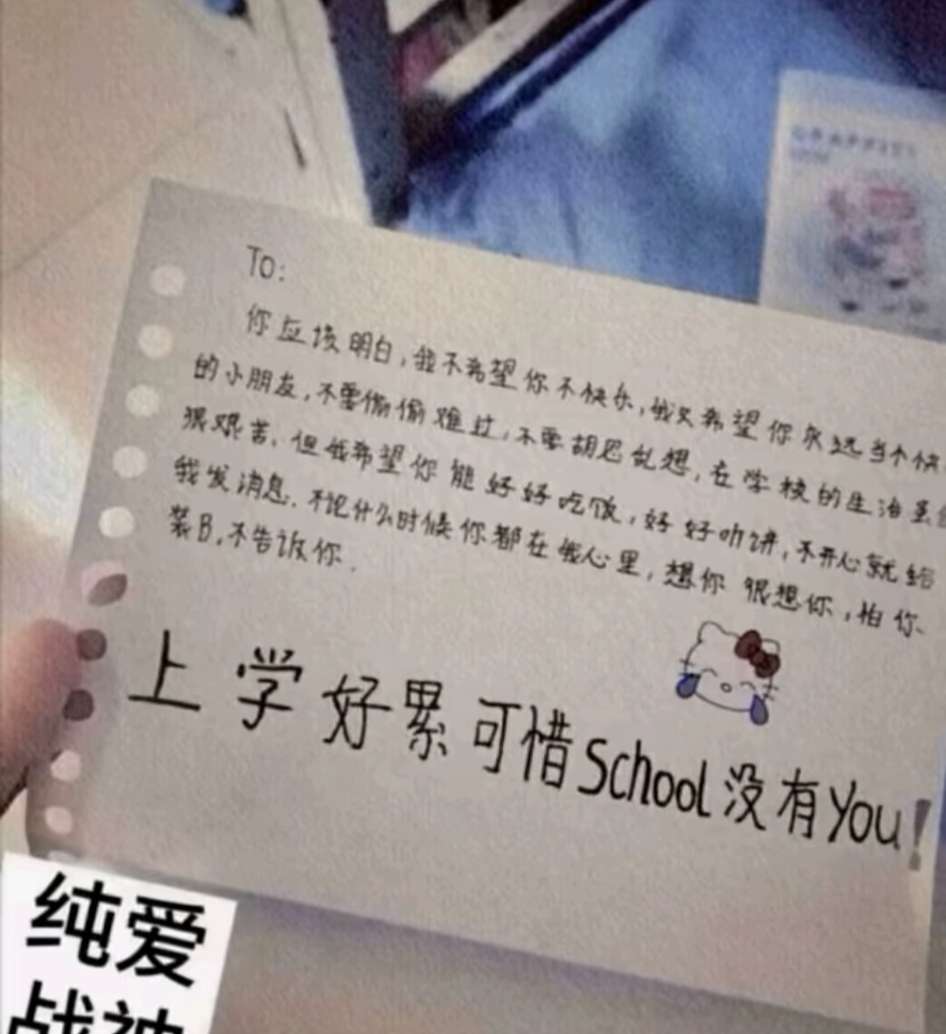 To:
你应该明白,我不希望你不快乐,我又希望你永远当个快
的小朋友,不要偷偷难过,不要胡思乱想,在学校的生活虽
很艰苦,但我希望你能好好吃饭,好好听讲,不开心就给
我发消息.不论什么时候你都在我心里,想你 很想你,怕你
装B,不告诉你.
上学好累可惜School没有You!
纯爱
战神